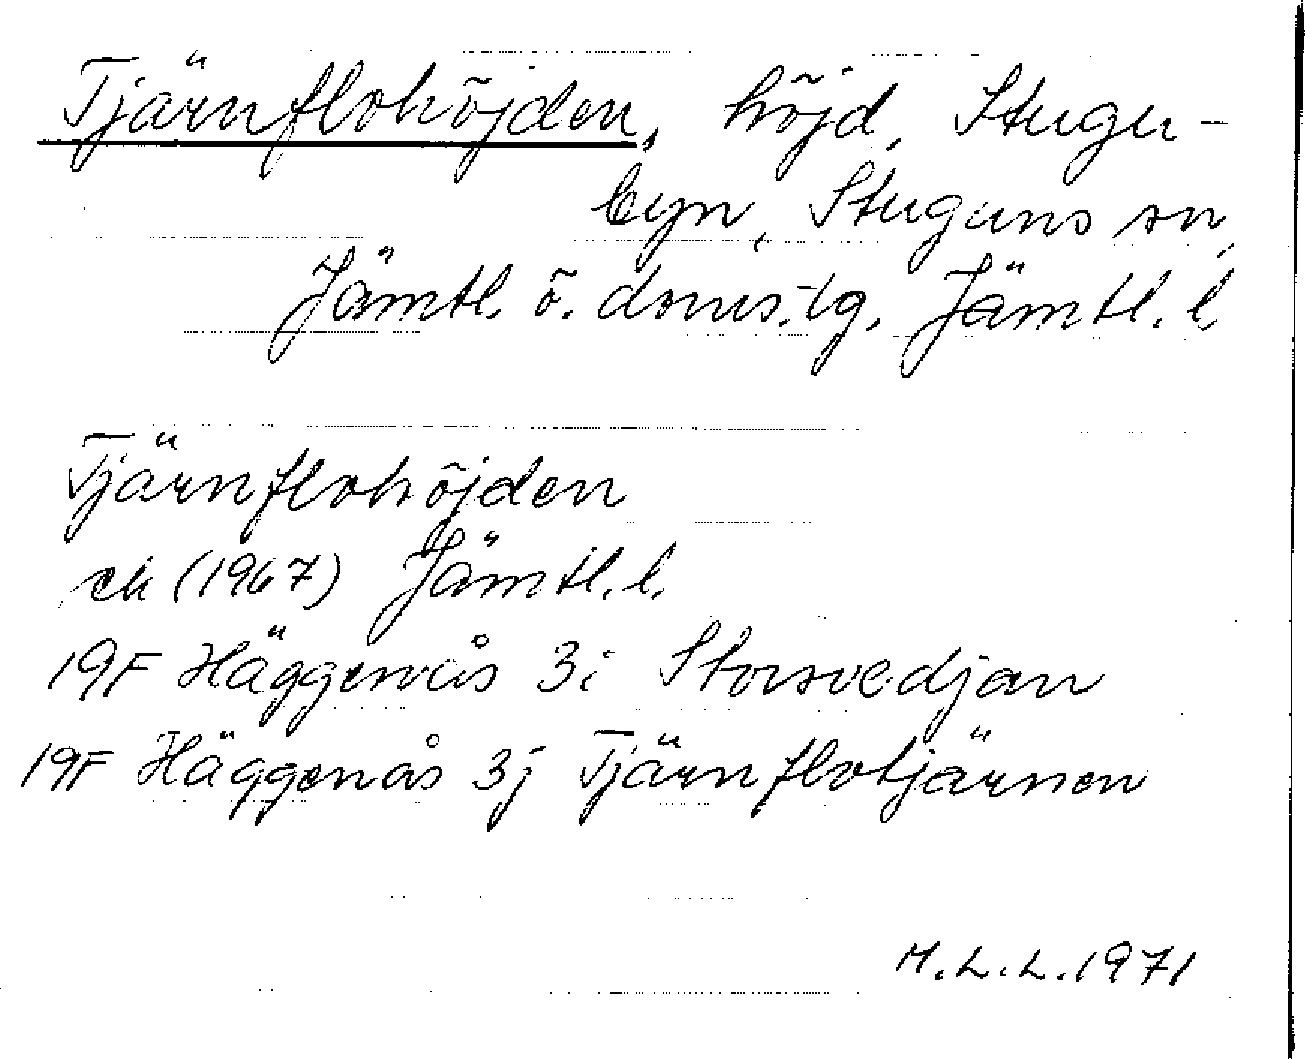 Tjärnflohöjden, höjd, Stugu-
byn, Stuguns sn,
Jämtl. ö. doms.-tg. Jämtl. l.
Tjärnflohöjden
ek (1967) Jämtl. l.
19F Häggenås 3i Storsvedjan
19F Häggenås 3j Tjärnflotjärnen
M.L.L. 1971